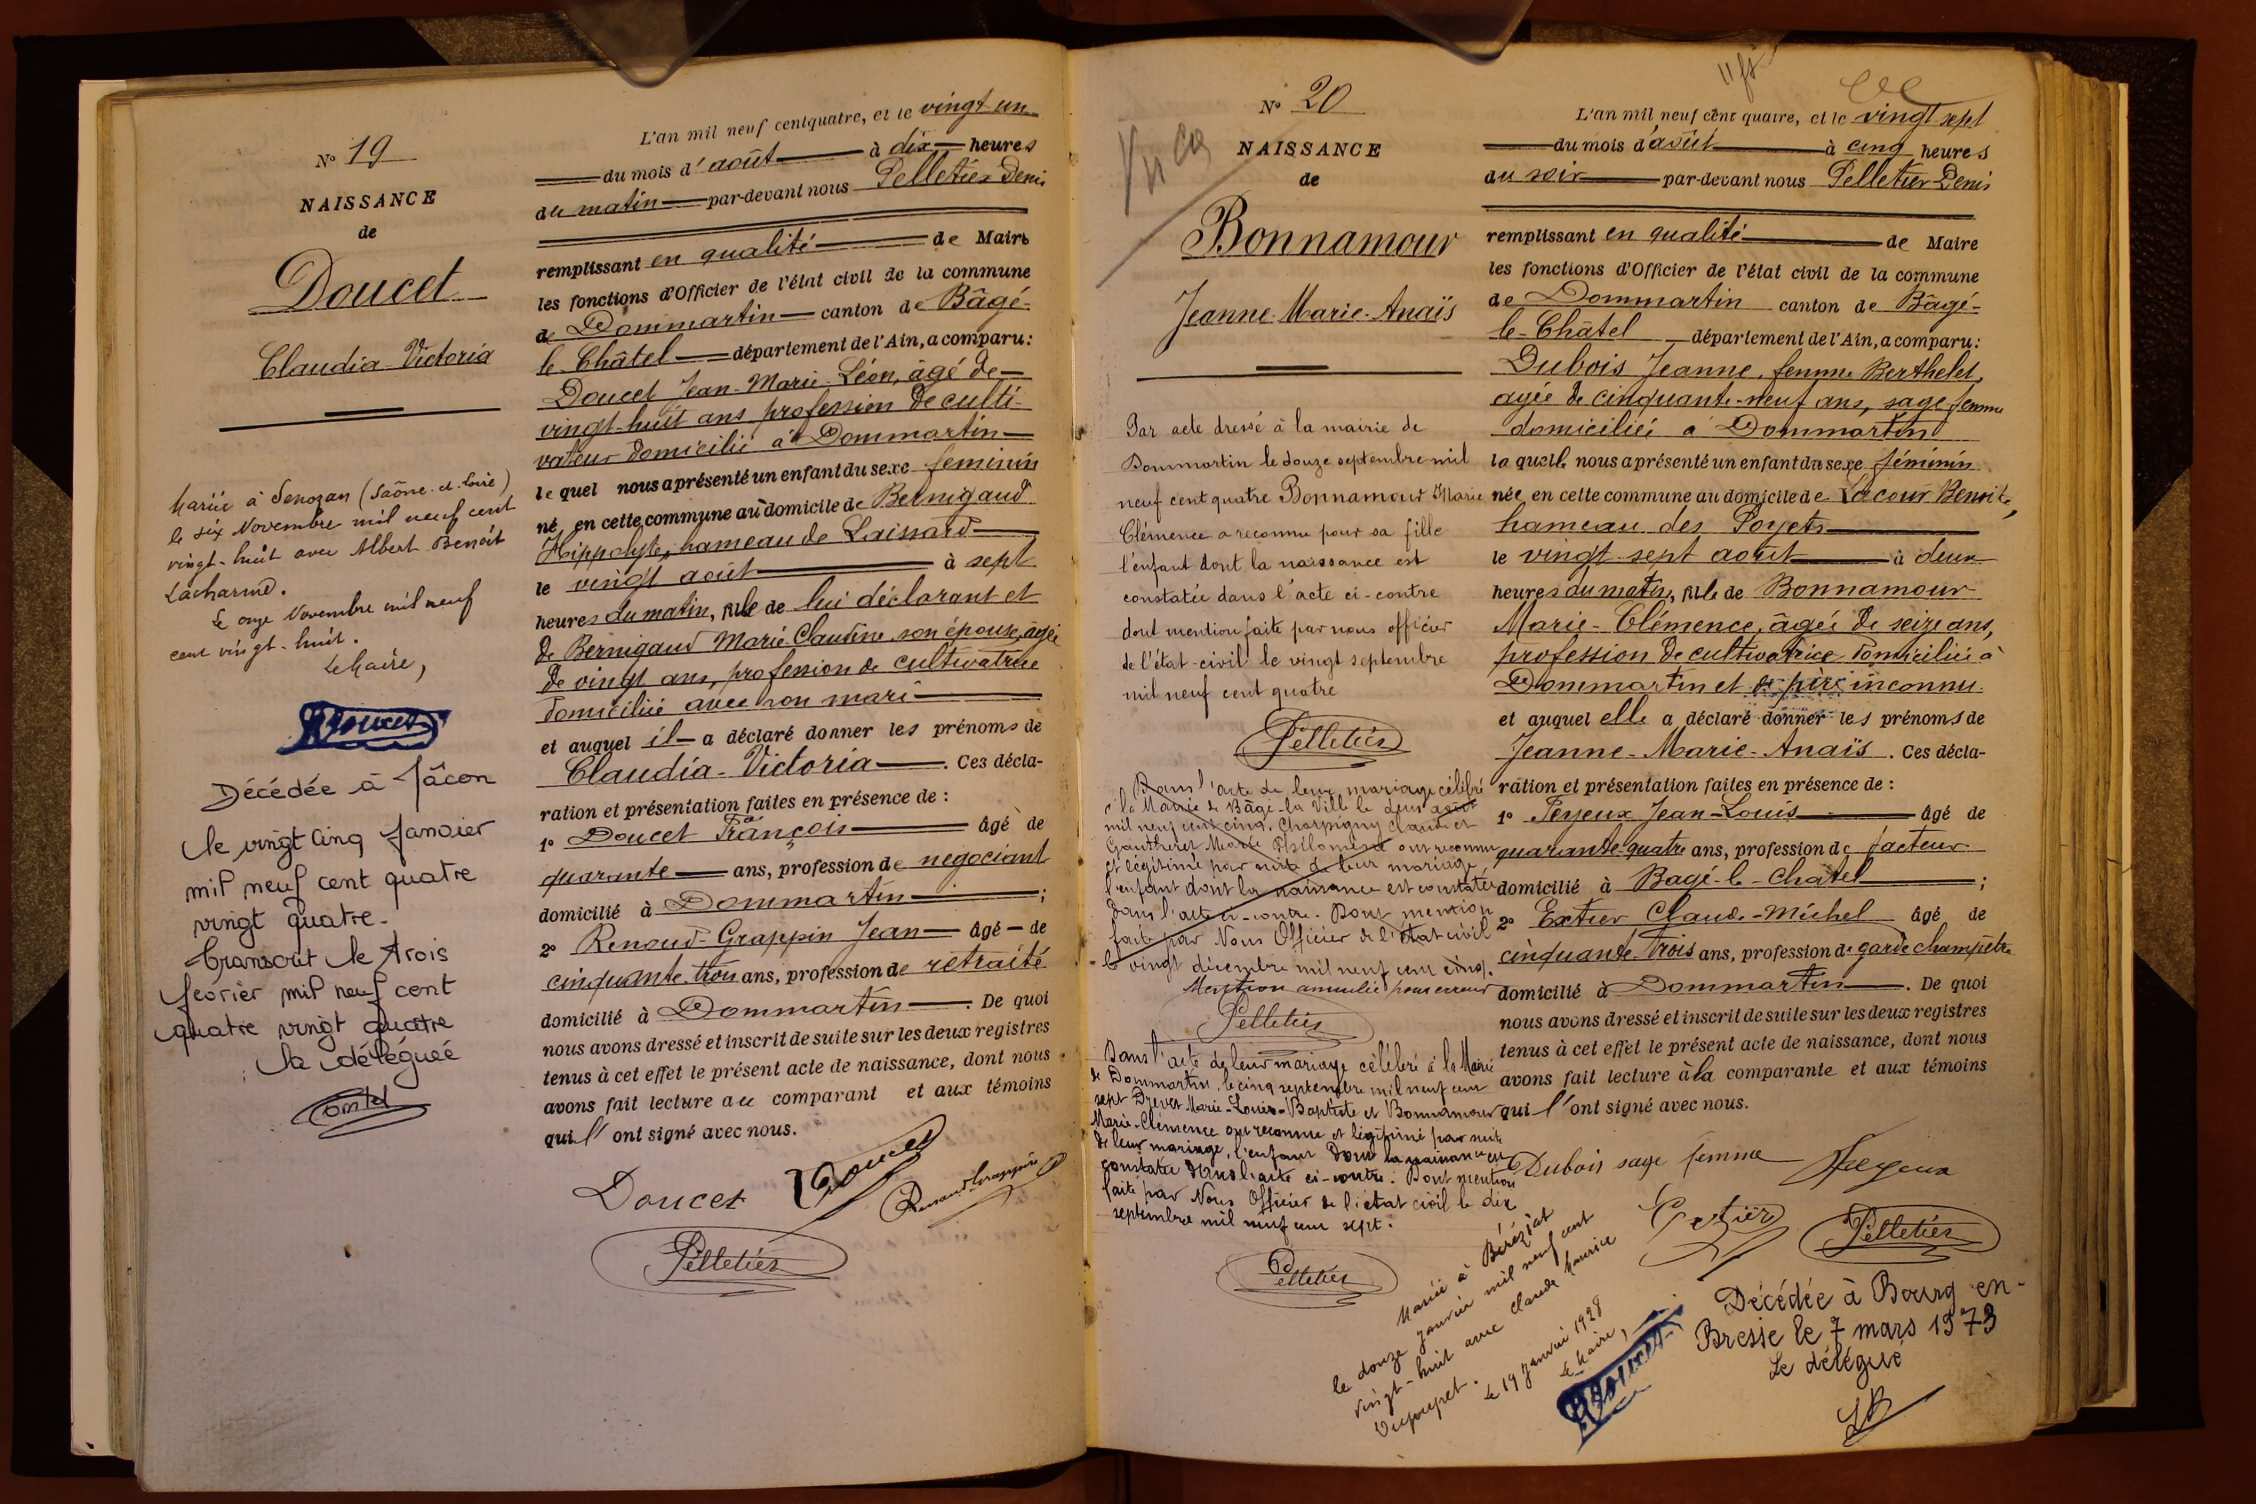 N° 19
NAISSANCE
de
Doucet
Claudia-Victoria
Mariée à Senozan (Saône-et-Loire)
le six Novembre mil neuf cent
vingt-huit avec Albert Benoît
Lacharme.
Le onze Novembre mil neuf
cent vingt-huit.
Le Maire,
Doucet
Décédée à Mâcon
le vingt cinq Janvier
mil neuf cent quatre
vingt quatre-
transcrit le trois
février mil neuf cent
quatre vingt quatre
la déléguée
L'an mil neuf cent quatre, et le vingt un
du mois d'août à dix heures
du matin par-devant nous Pelletier Denis
remplissant en qualité de Maire
les fonctions d'Officier de l'état civil de la commune
de Dommartin canton de Bâgé-
le-Châtel département de l'Ain, a comparu:
Doucet Jean-Marie-Léon, âgé de
vingt-huit ans profession de culti-
vateur domicilié à Dommartin
lequel nous a présenté un enfant du sexe féminin
né, en cette commune au domicile de Bernigaud
Hippolyte, hameau de Laissard
le vingt août à sept
heures du matin, fille de lui déclarant et
de Bernigaud Marie-Claudine son épouse, âgée
de vingt ans, profession de cultivatrice
domiciliée avec son mari
et auquel il a déclaré donner les prénoms de
Claudia-Victoria. Ces décla-
ration et présentation faites en présence de :
1° Doucet François âgé de
quarante ans, profession de négociant
domicilié à Dommartin ;
2° Renoud-Grappin Jean âgé de
cinquante trois ans, profession de retraité
domicilié à Dommartin. De quoi
nous avons dressé et inscrit de suite sur les deux registres
tenus à cet effet le présent acte de naissance, dont nous
avons fait lecture au comparant et aux témoins
qui l'ont signé avec nous.
Doucet Doucet Renoud Grappin
Pelletier
N° 20
NAISSANCE
de
Bonnamour
Jeanne-Marie-Anaïs
Par acte dressé à la mairie de
Dommartin le douze septembre mil
neuf cent quatre Bonnamour Marie
Clémence a reconnu pour sa fille
l'enfant dont la naissance est
constatée dans l'acte ci-contre
dont mention faite par nous officier
de l'état-civil le vingt septembre
mil neuf cent quatre
Pelletier
Dans l'acte de leur mariage célébré
à la Mairie de Bâgé-la Ville le deux août
mil neuf cent cinq, Charpigny Claude et
Gautheret Marie Philomène ont reconnu
et légitimé par suite de leur mariage,
l'enfant dont la naissance est constatée
dans l'acte ci-contre. Dont mention
faite par Nous Officier de l'état civil
le vingt décembre mil neuf cent cinq.
Mention annulée pour erreur
Pelletier
Dans l'acte de leur mariage célébré à la Mairie
de Dommartin, le cinq septembre mil neuf cent
sept Drevet Marie-Louis-Baptiste et Bonnamour
Marie-Clémence ont reconnu et légitimé par suite
de leur mariage, l'enfant dont la naissance est
constatée dans l'acte ci-contre. Dont mention
faite par Nous Officier de l'état civil le dix
septembre mil neuf cent sept.
Pelletier
L'an mil neuf cent quatre, et le vingt sept
du mois d'août à cinq heures
du soir par-devant nous Pelletier Denis
remplissant en qualité de Maire
les fonctions d'Officier de l'état civil de la commune
de Dommartin canton de Bâgé-
le-Châtel département de l'Ain, a comparu:
Dubois Jeanne, femme Berthelet,
agée de cinquante-neuf ans, sage femme
domiciliée à Dommartin
laquelle nous a présenté un enfant du sexe féminin
née, en cette commune au domicile de Lacour Benoit,
hameau des Poyets
le vingt sept août à deux
heures du matin, fille de Bonnamour
Marie-Clémence, âgée de seize ans,
profession de cultivatrice domiciliée à
Dommartin et de père inconnu.
et auquel elle a déclaré donner les prénoms de
Jeanne-Marie-Anaïs. Ces décla-
ration et présentation faites en présence de :
1° Peyeux Jean-Louis âgé de
quarante-quatre ans, profession de facteur
domicilié à Bagé-le-Chatel ;
2° Extier Claude-Michel âgé de
cinquante-trois ans, profession de garde champêtre
domicilié à Dommartin. De quoi
nous avons dressé et inscrit de suite sur les deux registres
tenus à cet effet le présent acte de naissance, dont nous
avons fait lecture à la comparante et aux témoins
qui l'ont signé avec nous.
Dubois sage femme Peyeux
Extier Pelletier
Mariée à Béréziat
le douze janvier mil neuf cent
vingt-huit avec Claude Maurice
Le 19 Janvier 1928
Le Maire,
Doucet
Décédée à Bourg-en-
Bresse le 7 mars 1973
Le délégué